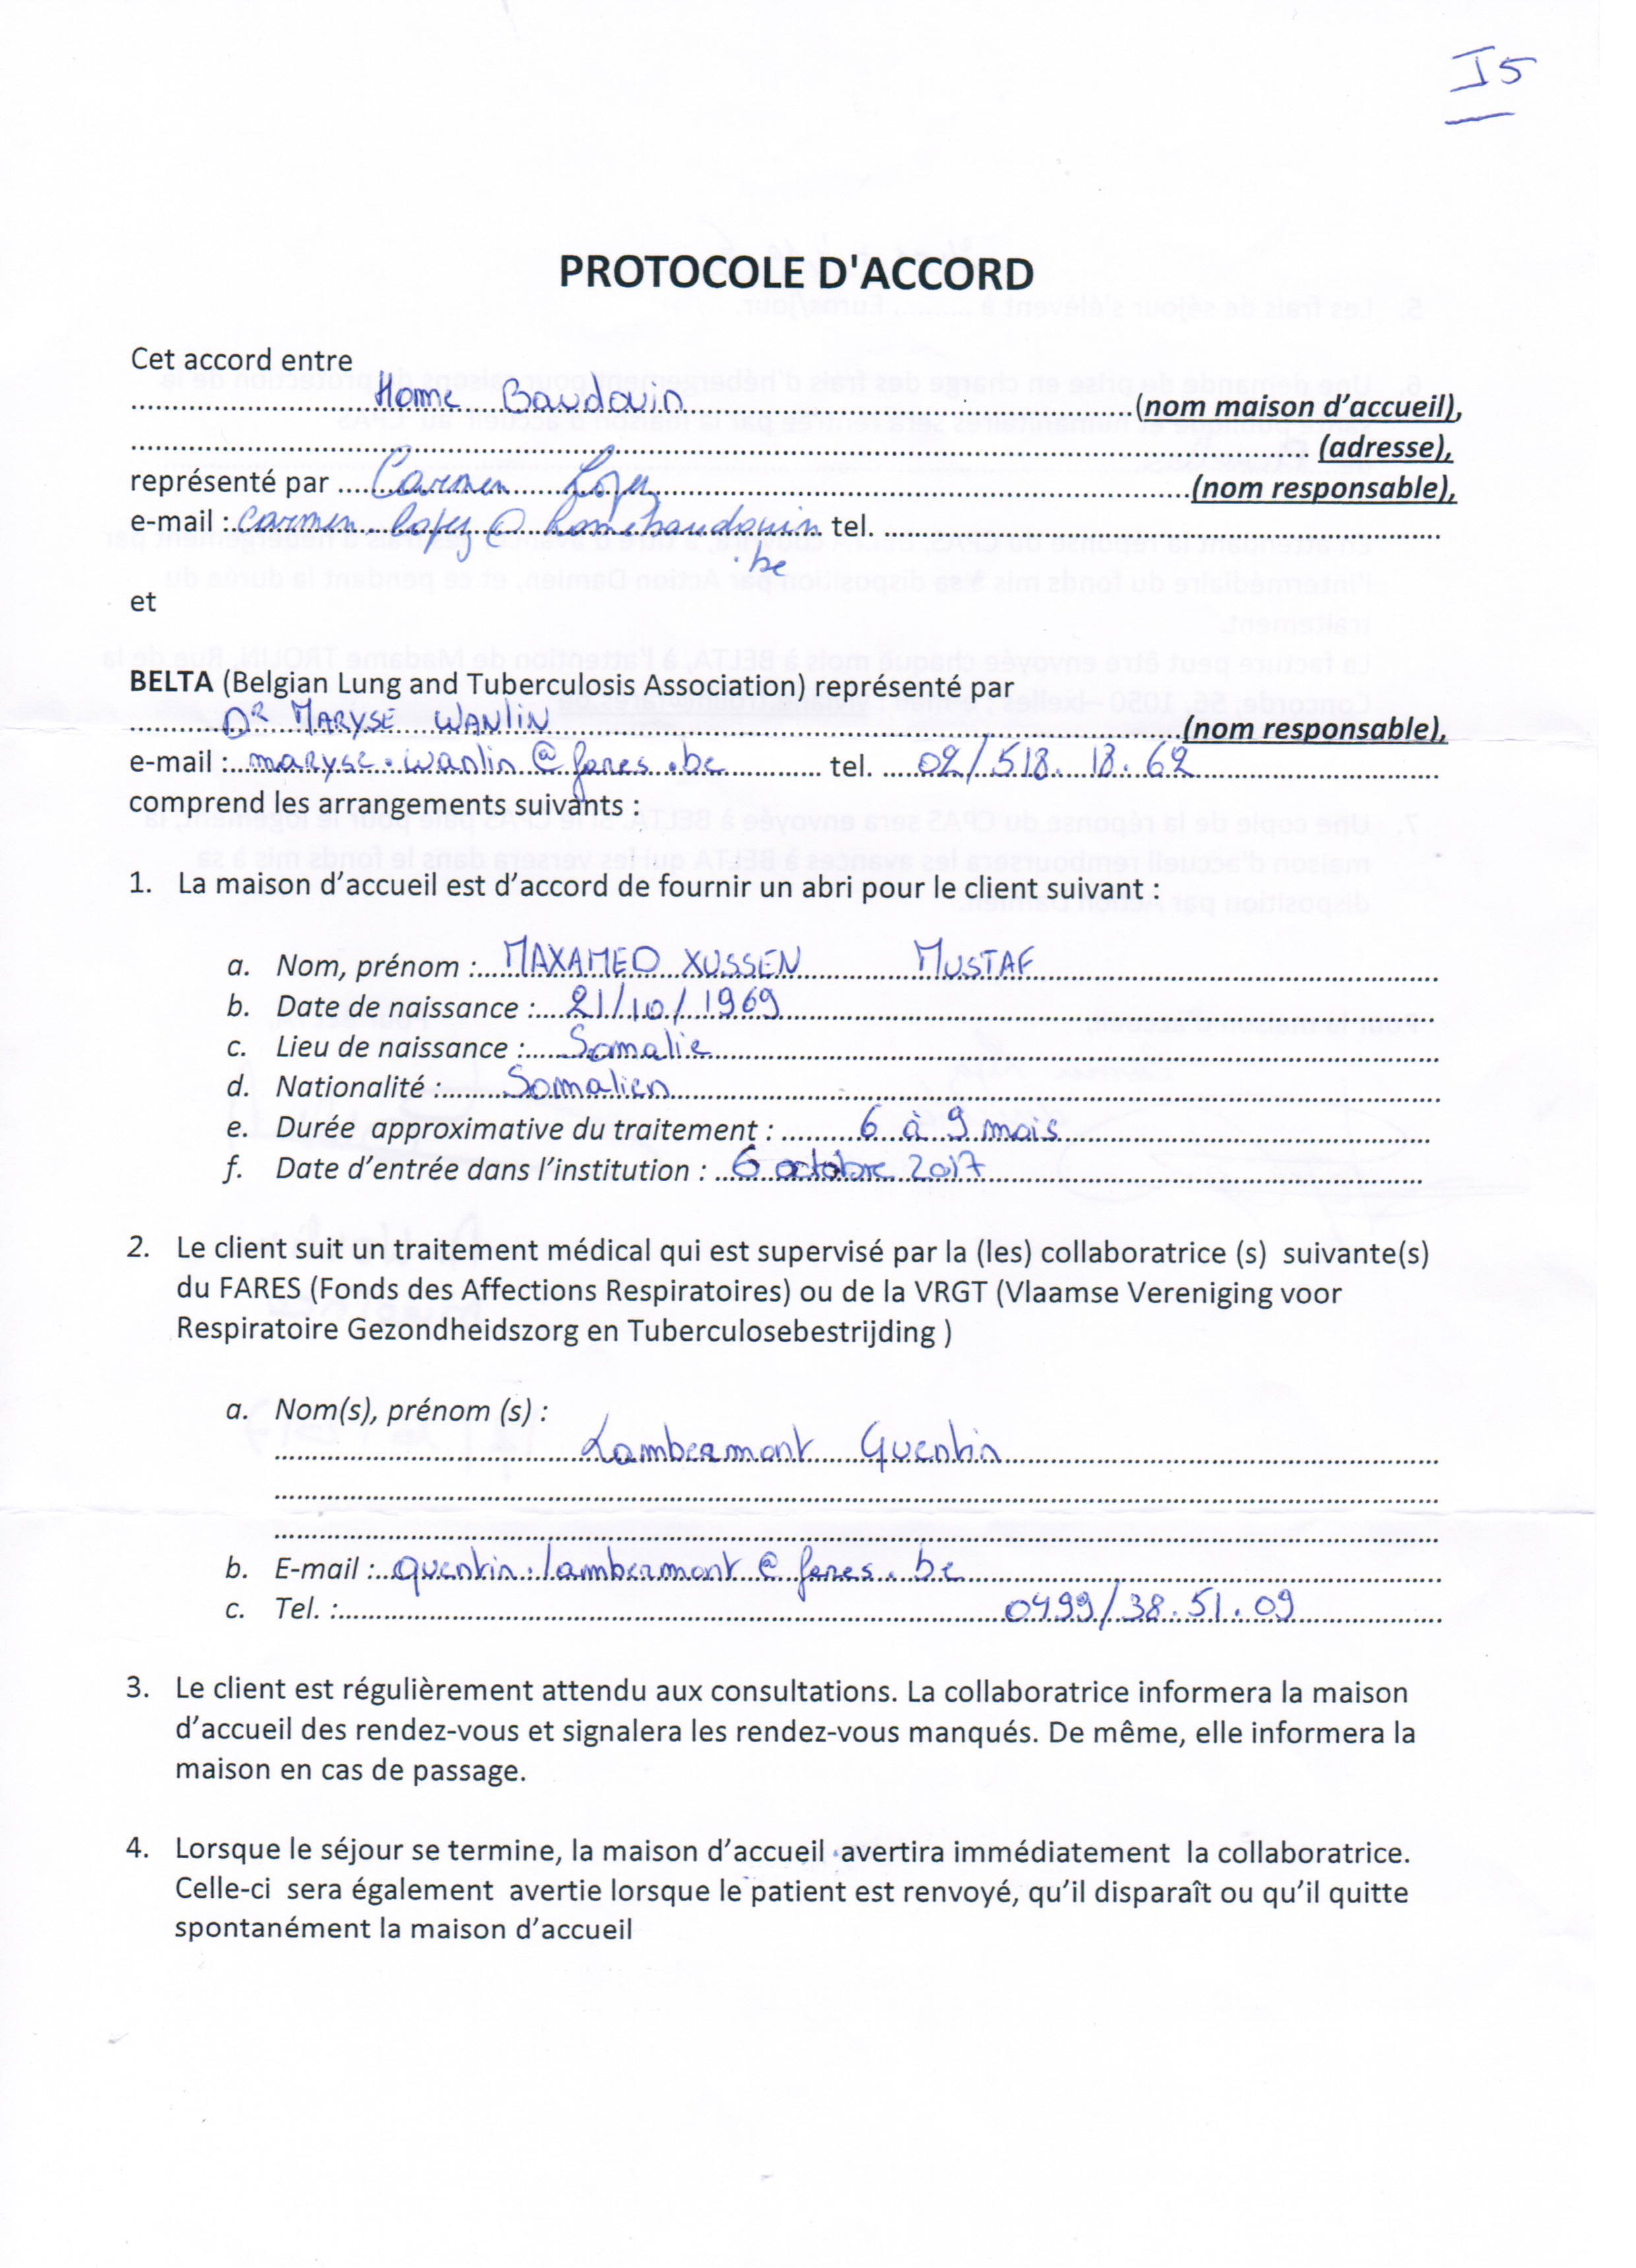 I5
PROTOCOLE D'ACCORD
Cet accord entre
Home Baudouin (nom maison d'accueil),
(adresse),
représenté par Carmen Lopez (nom responsable),
e-mail : carmen.lopez@homebaudouin tel.
.be
et
BELTA (Belgian Lung and Tuberculosis Association) représenté par
DR MARYSE WANLIN (nom responsable),
e-mail : maryse.wanlin@fares.be tel. 02/518.18.62
comprend les arrangements suivants :
1. La maison d'accueil est d'accord de fournir un abri pour le client suivant :
a. Nom, prénom : MAXAMED XUSSEN MUSTAF
b. Date de naissance : 21/10/1969
c. Lieu de naissance : Somalie
d. Nationalité : Somalien
e. Durée approximative du traitement : 6 à 9 mois
f. Date d'entrée dans l'institution : 6 octobre 2017
2. Le client suit un traitement médical qui est supervisé par la (les) collaboratrice (s) suivante(s)
du FARES (Fonds des Affections Respiratoires) ou de la VRGT (Vlaamse Vereniging voor
Respiratoire Gezondheidszorg en Tuberculosebestrijding )
a. Nom(s), prénom (s) :
Lambermont Quentin
b. E-mail : quentin.lambermont@fares.be
c. Tel. : 0499/38.51.09
3. Le client est régulièrement attendu aux consultations. La collaboratrice informera la maison
d'accueil des rendez-vous et signalera les rendez-vous manqués. De même, elle informera la
maison en cas de passage.
4. Lorsque le séjour se termine, la maison d'accueil avertira immédiatement la collaboratrice.
Celle-ci sera également avertie lorsque le patient est renvoyé, qu'il disparaît ou qu'il quitte
spontanément la maison d'accueil